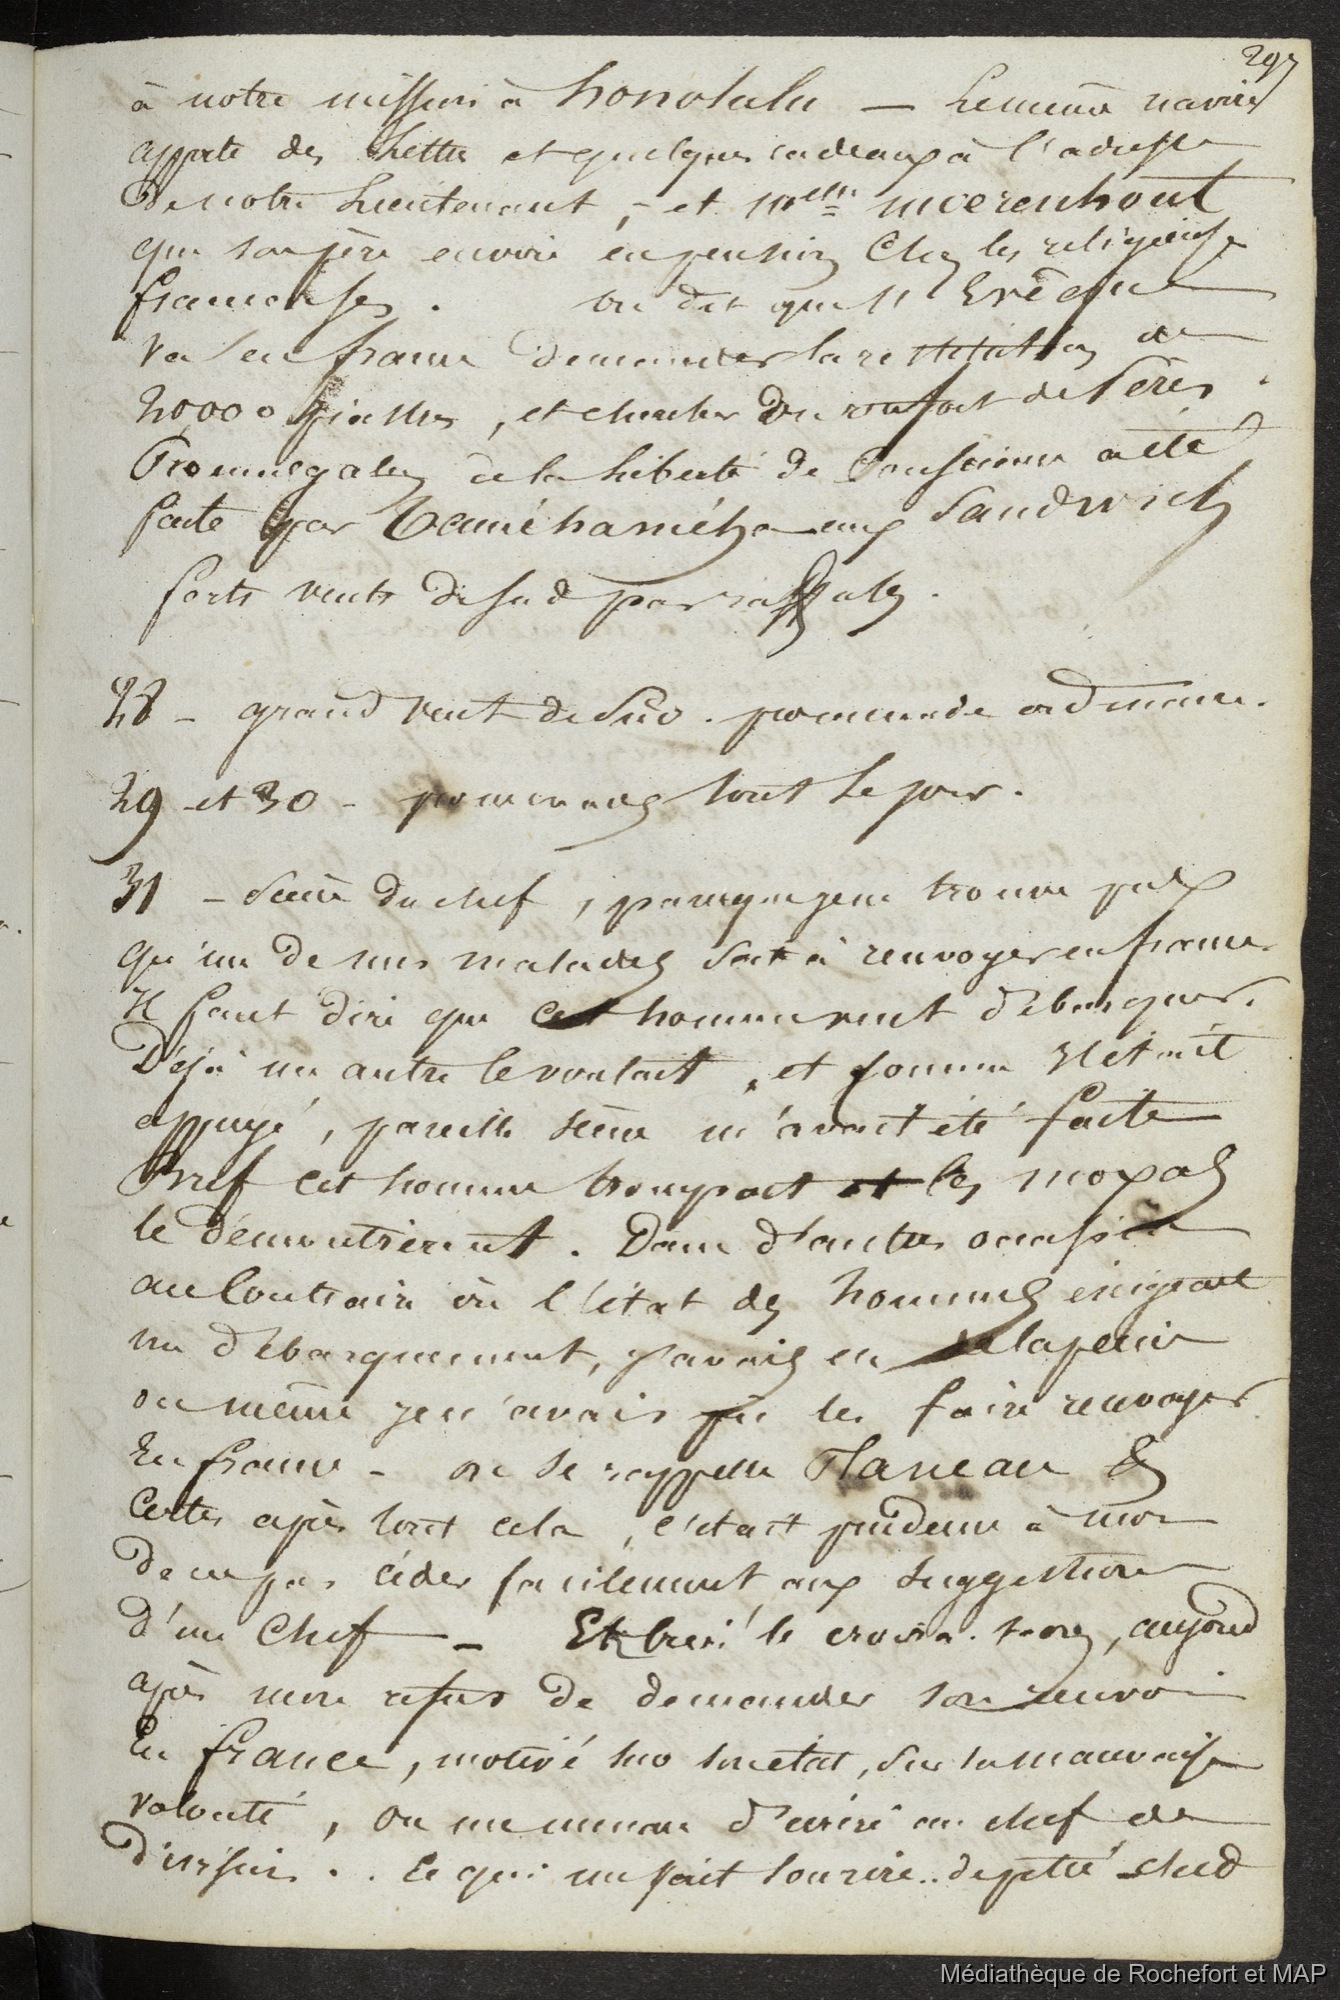 297
à notre mission à honolulu — Le même navire
apporte des Lettres et quelques cadeaux à l'adresse
de notre Lieutenant, - et Melle moerenhout
que son père envoie en pension chez les religieuses
françaises. on dit que l'Evêque
va en france demander la restitution de
20,000 piastres, et chercher du renfort de Pères.
Promulgation de la liberté de Conscience a été
faite par Taméhaméha aux Sandwich
forts vents du sud par rafales.
28 - grand vent de Sud. promenade ordinaire.
29 et 30 - promenades tout le jour.
31 - Scène du chef, parce que je ne trouve pas
qu'un de mes malades soit à renvoyer en france
Il faut dire que cet homme veut débarquer.
Déjà un autre le voulait, et comme Il était
appuyé, pareille scène m'avait été faite
Bref cet homme trompait et les moxas
le démontrèrent. Dans d'autres occasions
au Contraire où l'état des hommes exigeait
un débarquement, j'avais eu de la peine
ou même je n'avais pu les faire renvoyer
En france - on se rappelle Planeau &
Certes après tout cela, c'était prudence à moi
de ne pas céder facilement aux suggestions
d'un Chef — Et bien! le croira-t-on, aujourd
après mon refus de demander son renvoi
En france, motivé sur son état, sur sa mauvaise
volonté, on me menace d'écrire au chef de
division.. Ce qui me fait sourire.. de pitié